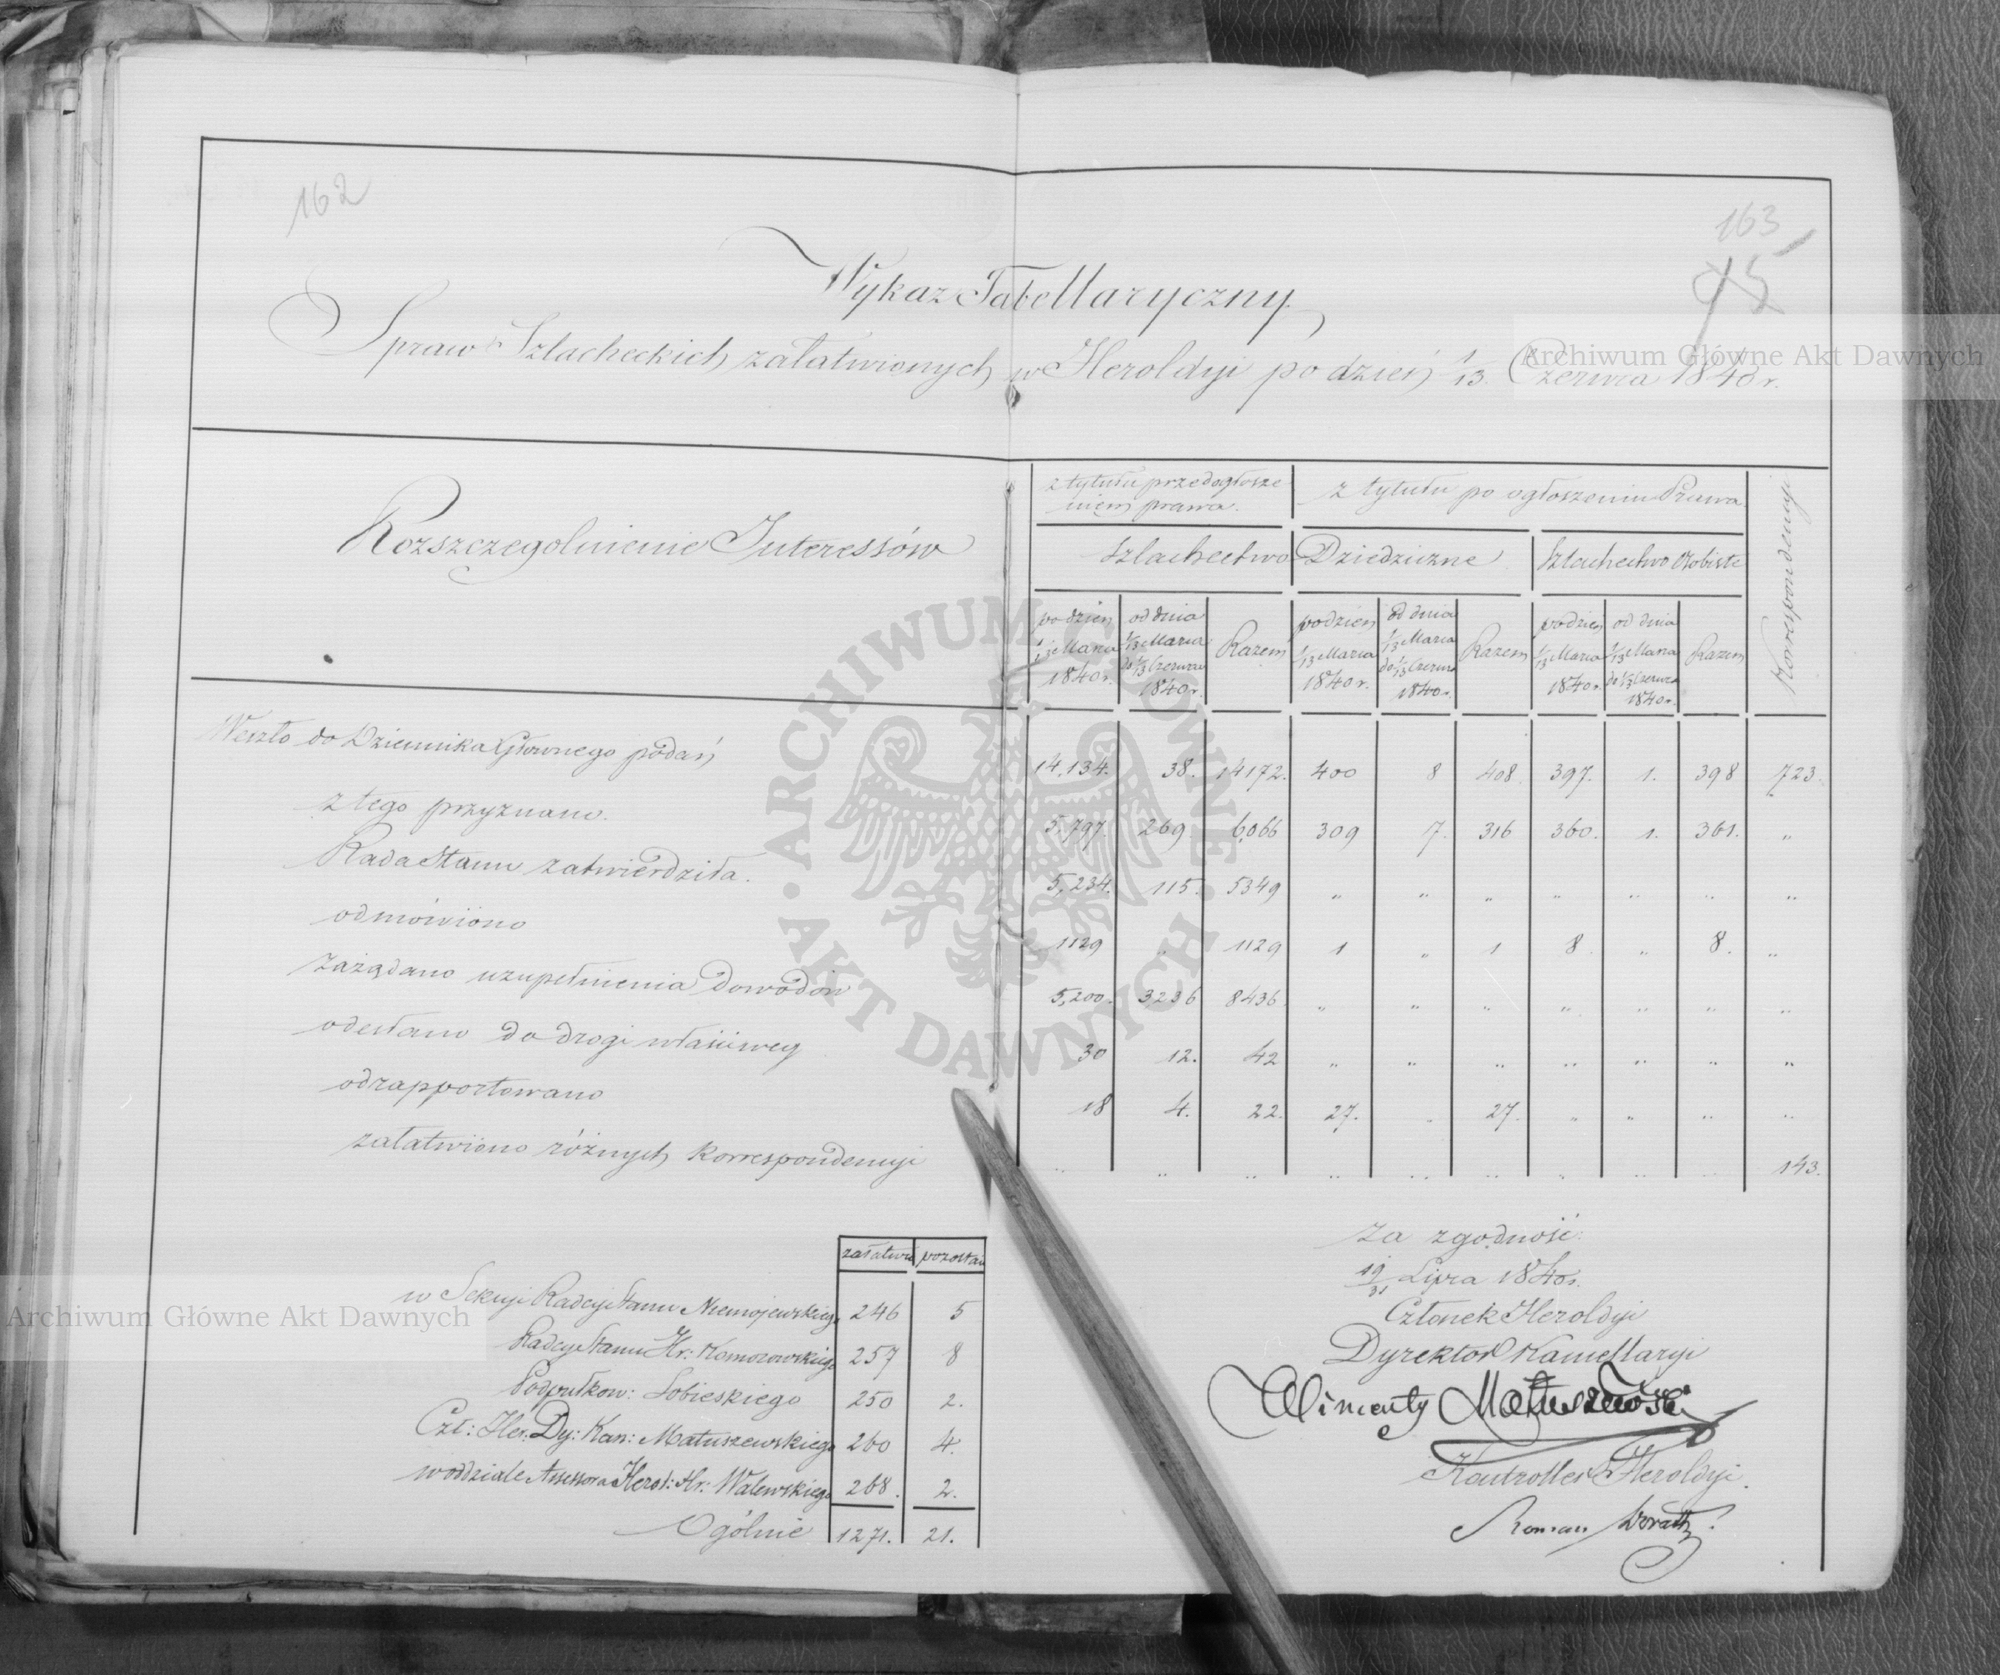 162
163
95
Wykaz Tabellaryczny
Spraw Szlacheckich załatwionych w Heroldyi po dzień 1/13 Czerwca 1840 r.
Rozszczegolnienie Interessów
z tytułu przed ogłosze-
niem prawa.
z tytułu po ogłoszeniu Prawa
Korrespondencyi
Szlachectwo Dziedziczne
Szlachectwo Osobiste
po dzień 1/13 Marca 1840 r.
od dnia 1/13 Marca do 1/13 Czerwca 1840 r.
Razem
po dzień 1/13 Marca 1840 r.
od dnia 1/13 Marca do 1/13 Czerwca 1840 r.
Razem
po dzień 1/13 Marca 1840 r.
od dnia 1/13 Marca do 1/13 Czerwca 1840 r.
Razem
Weszło do Dziennika Głownego podań 14,134. 38. 14172. 400 8 408. 397. 1. 398 723.
z tego przyznano. 5,797. 269. 6,066 309 7. 316 360. 1. 361. "
Rada Stanu zatwierdziła. 5,234. 115. 5349 " " " " " " "
odmówiono 1129 " 1129 1 " 1 8 " 8. "
zażądano uzupełnienia Dowodów 5,200. 3236 8436 " " " " " " "
odesłano do drogi właściwey 30 12. 42 " " " " " " "
odrapportowano 18 4. 22. 27. " 27. " " " "
załatwiono różnych korrespondencyi " " " " " " " " " 143.
załatwio pozostaie
w Sekcyi Radcy Stanu Niemojewskiego 246 5
Radcy Stanu Hr: Komorowskiego 257 8
Podpułkow: Sobieskiego 250 2.
Czł: Her: Dy: Kan: Matuszewskiego 260 4.
w oddziale Assessora Herol: Hr: Walewskiego 268. 2.
Ogólnie 1271. 21.
Za zgodność:
19/31 Lipca 1840 r.
Członek Heroldyi
Dyrektor Kancellaryi
Wincenty Matuszewski
Kontroller Heroldyi.
Roman
Archiwum Główne Akt Dawnych
Archiwum Główne Akt Dawnych
ARCHIWUM GŁÓWNE AKT DAWNYCH